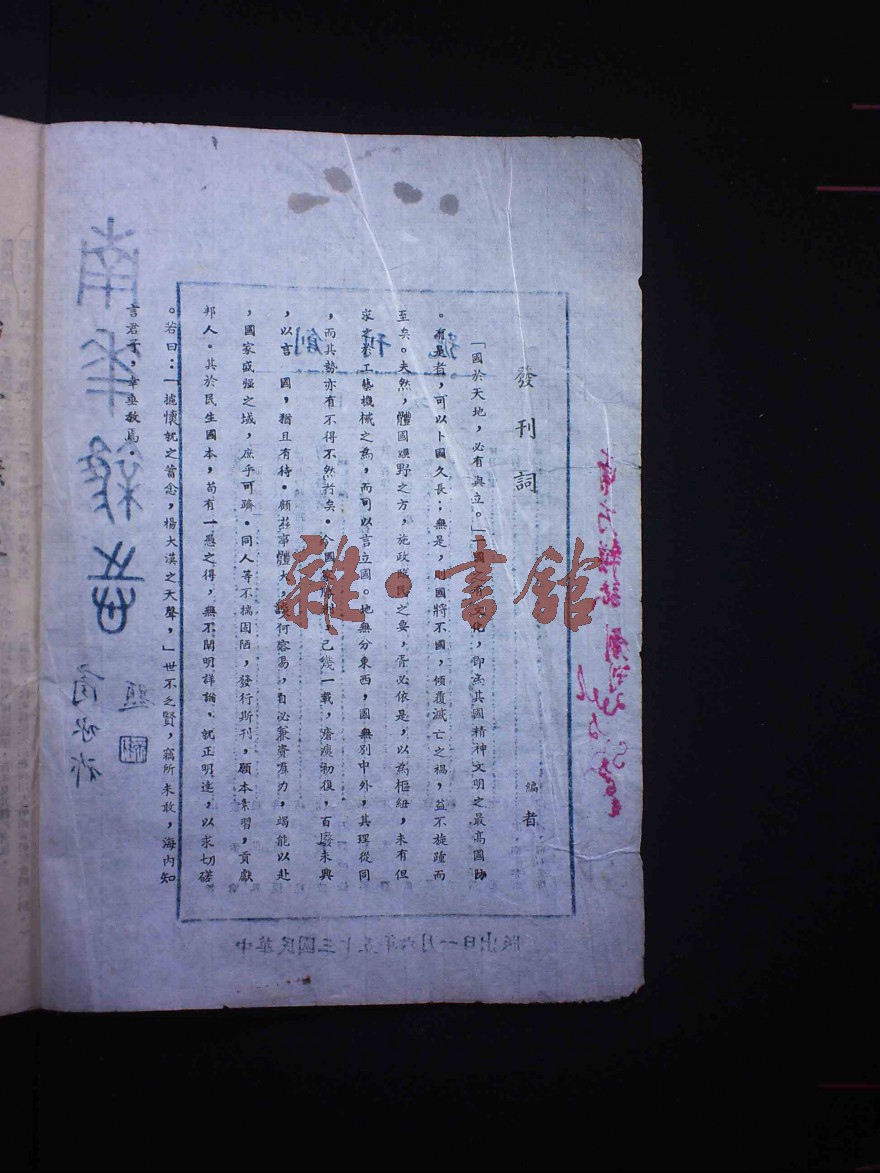 發刊詞
編者
「國於天地，必有與立。」一國之有文化，即為其國精神文明之最高國防
。有是者，可以卜國久長；無是，則國將不國，傾覆滅亡之禍，益不旋踵而
至矣。夫然，體國經野之方，施政臨民之要，胥必依是，以為樞紐，未有但
求之於工藝機械之為，而可以言立國。地無分東西，國無別中外，其理從同
，而其勢亦有不得不然者矣。今國家勝利，已幾一載，瘡痍初復，百廢未興
，以言國，猶且有待。顧茲事體大，談何容易，自必兼資羣力，竭能以赴
，國家盛強之域，庶乎可躋。同人等不揣固陋，發行斯刊，願本素習，貢獻
邦人。其於民生國本，苟有一愚之得，無不闡明詳論，就正明達，以求切磋
。若曰：「攄懷就之蓄念，揚大漢之天聲，」世不乏賢，竊所未敢，海內知
言君子，幸垂教焉。
創刊號
中華民國三十五年六月一日出版
雜·書館